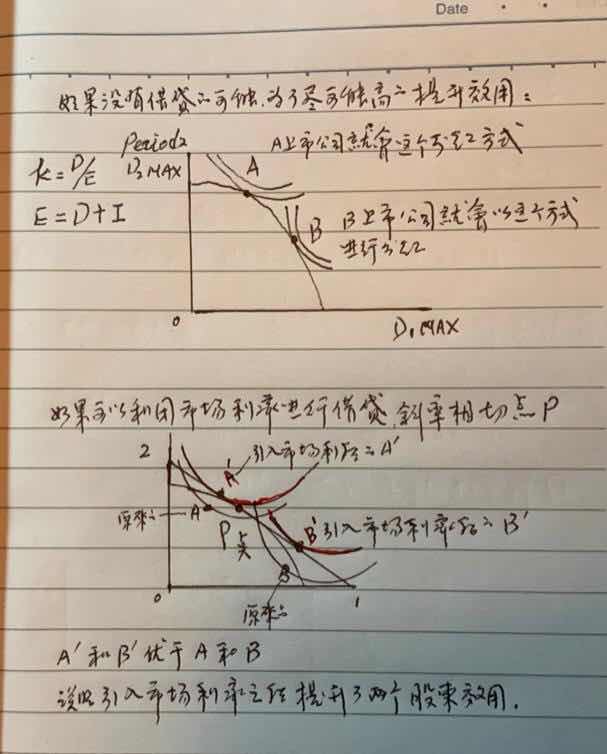 Date
如果没有借贷的可能,为了尽可能高的提升效用:
Period2
D₂MAX
A上市公司就会这个分红方式
k=D/E
E=D+I
A
B
B上市公司就会以这个方式
进行分红
0
D₁MAX
如果可以利用市场利率进行借贷,斜率相切点P
2
A'
引入市场利率后的A'
原来的
A
P点
B'
引入市场利率后的B'
B
0
1
原来的
A'和B'优于A和B
说明引入市场利率之后提升了两个股东效用.